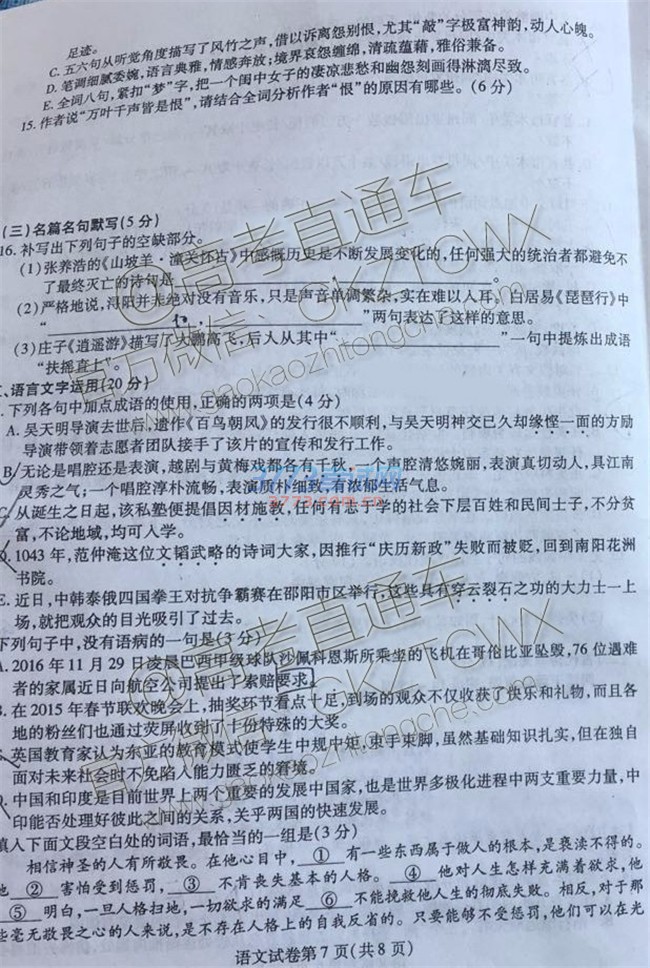 足迹。
C. 五六句从听觉角度描写了风竹之声,借以诉离怨别恨,尤其“敲”字极富神韵,动人心魄。
D. 笔调细腻委婉,语言典雅,情感奔放;境界哀怨缠绵,清疏蕴藉,雅俗兼备。
E. 全词八句,紧扣“梦”字,把一个闺中女子的凄凉悲愁和幽怨刻画得淋漓尽致。
15. 作者说“万叶千声皆是恨”,请结合全词分析作者“恨”的原因有哪些。(6分)
(三)名篇名句默写(5分)
16. 补写出下列句子的空缺部分。
(1)张养浩的《山坡羊·潼关怀古》中感慨历史是不断发展变化的,任何强大的统治者都避免不
了最终灭亡的诗句是 , 。
(2)严格地说,浔阳并非绝对没有音乐,只是声音单调繁杂,实在难以入耳,白居易《琵琶行》中
“ , ”两句表达了这样的意思。
(3)庄子《逍遥游》描写了大鹏高飞,后人从其中“ ”一句中提炼出成语
“扶摇直上”。
、语言文字运用(20分)
. 下列各句中加点成语的使用,正确的两项是(4分)
A. 吴天明导演去世后,遗作《百鸟朝凤》的发行很不顺利,与吴天明神交已久却缘悭一面的方励
导演带领着志愿者团队接手了该片的宣传和发行工作。
B. 无论是唱腔还是表演,越剧与黄梅戏都各有千秋,一个声腔清悠婉丽,表演真切动人,具江南
灵秀之气;一个唱腔淳朴流畅,表演质朴细致,有浓郁生活气息。
C. 从诞生之日起,该私塾便提倡因材施教,任何有志于学的社会下层百姓和民间士子,不分贫
富,不论地域,均可入学。
D. 1043年,范仲淹这位文韬武略的诗词大家,因推行“庆历新政”失败而被贬,回到南阳花洲
书院。
E. 近日,中韩泰俄四国拳王对抗争霸赛在邵阳市区举行,这些具有穿云裂石之功的大力士一上
场,就把观众的目光吸引了过去。
下列句子中,没有语病的一句是(3分)
A. 2016年11月29日凌晨巴西甲级球队沙佩科恩斯所乘坐的飞机在哥伦比亚坠毁,76位遇难
者的家属近日向航空公司提出了索赔要求。
B. 在2015年春节联欢晚会上,抽奖环节看点十足,到场的观众不仅收获了快乐和礼物,而且各
地的粉丝们也通过荧屏收到了十份特殊的大奖。
C. 英国教育家认为东亚的教育模式使学生中规中矩,束手束脚,虽然基础知识扎实,但在独自
面对未来社会时不免陷入能力匮乏的窘境。
D. 中国和印度是目前世界上两个重要的发展中国家,也是世界多极化进程中两支重要力量,中
印能否处理好彼此之间的关系,关乎两国的快速发展。
填入下面文段空白处的词语,最恰当的一组是(3分)
相信神圣的人有所敬畏。在他心目中, ① 有一些东西属于做人的根本,是亵渎不得的。
他 ② 害怕受到惩罚, ③ 不肯丧失基本的人格。 ④ 他对人生怎样充满着欲求,他
⑤ 明白,一旦人格扫地,一切欲求的满足 ⑥ 不能挽救他人生的彻底失败。相反,对于那
些毫无敬畏之心的人来说,是不存在人格上的自我反省的。只要能够不受惩罚,他们可以在光
语文试卷第7页(共8页)
@高考直通车
官方微信:GKZTCWX
www.gaokaozhitongche.com